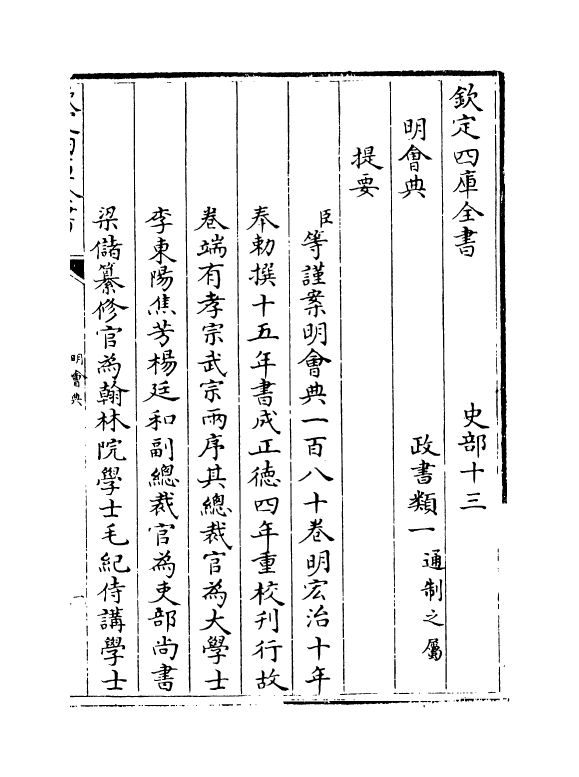 欽定四庫全書
史部十三
明會典
政書類一通制之屬
提要
臣等謹案明會典一百八十卷明宏治十年
奉勅撰十五年書成正徳四年重校刊行故
卷端有孝宗武宗兩序其總裁官為大學士
李東陽焦芳楊廷和副總裁官為吏部尚書
梁儲纂修官為翰林院學士毛紀侍講學士
明會典